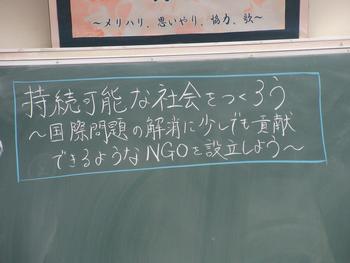 ～メリハリ、思いやり、協力、歌～
持続可能な社会をつくろう
～国際問題の解消に少しでも貢献
できるようなNGOを設立しよう～